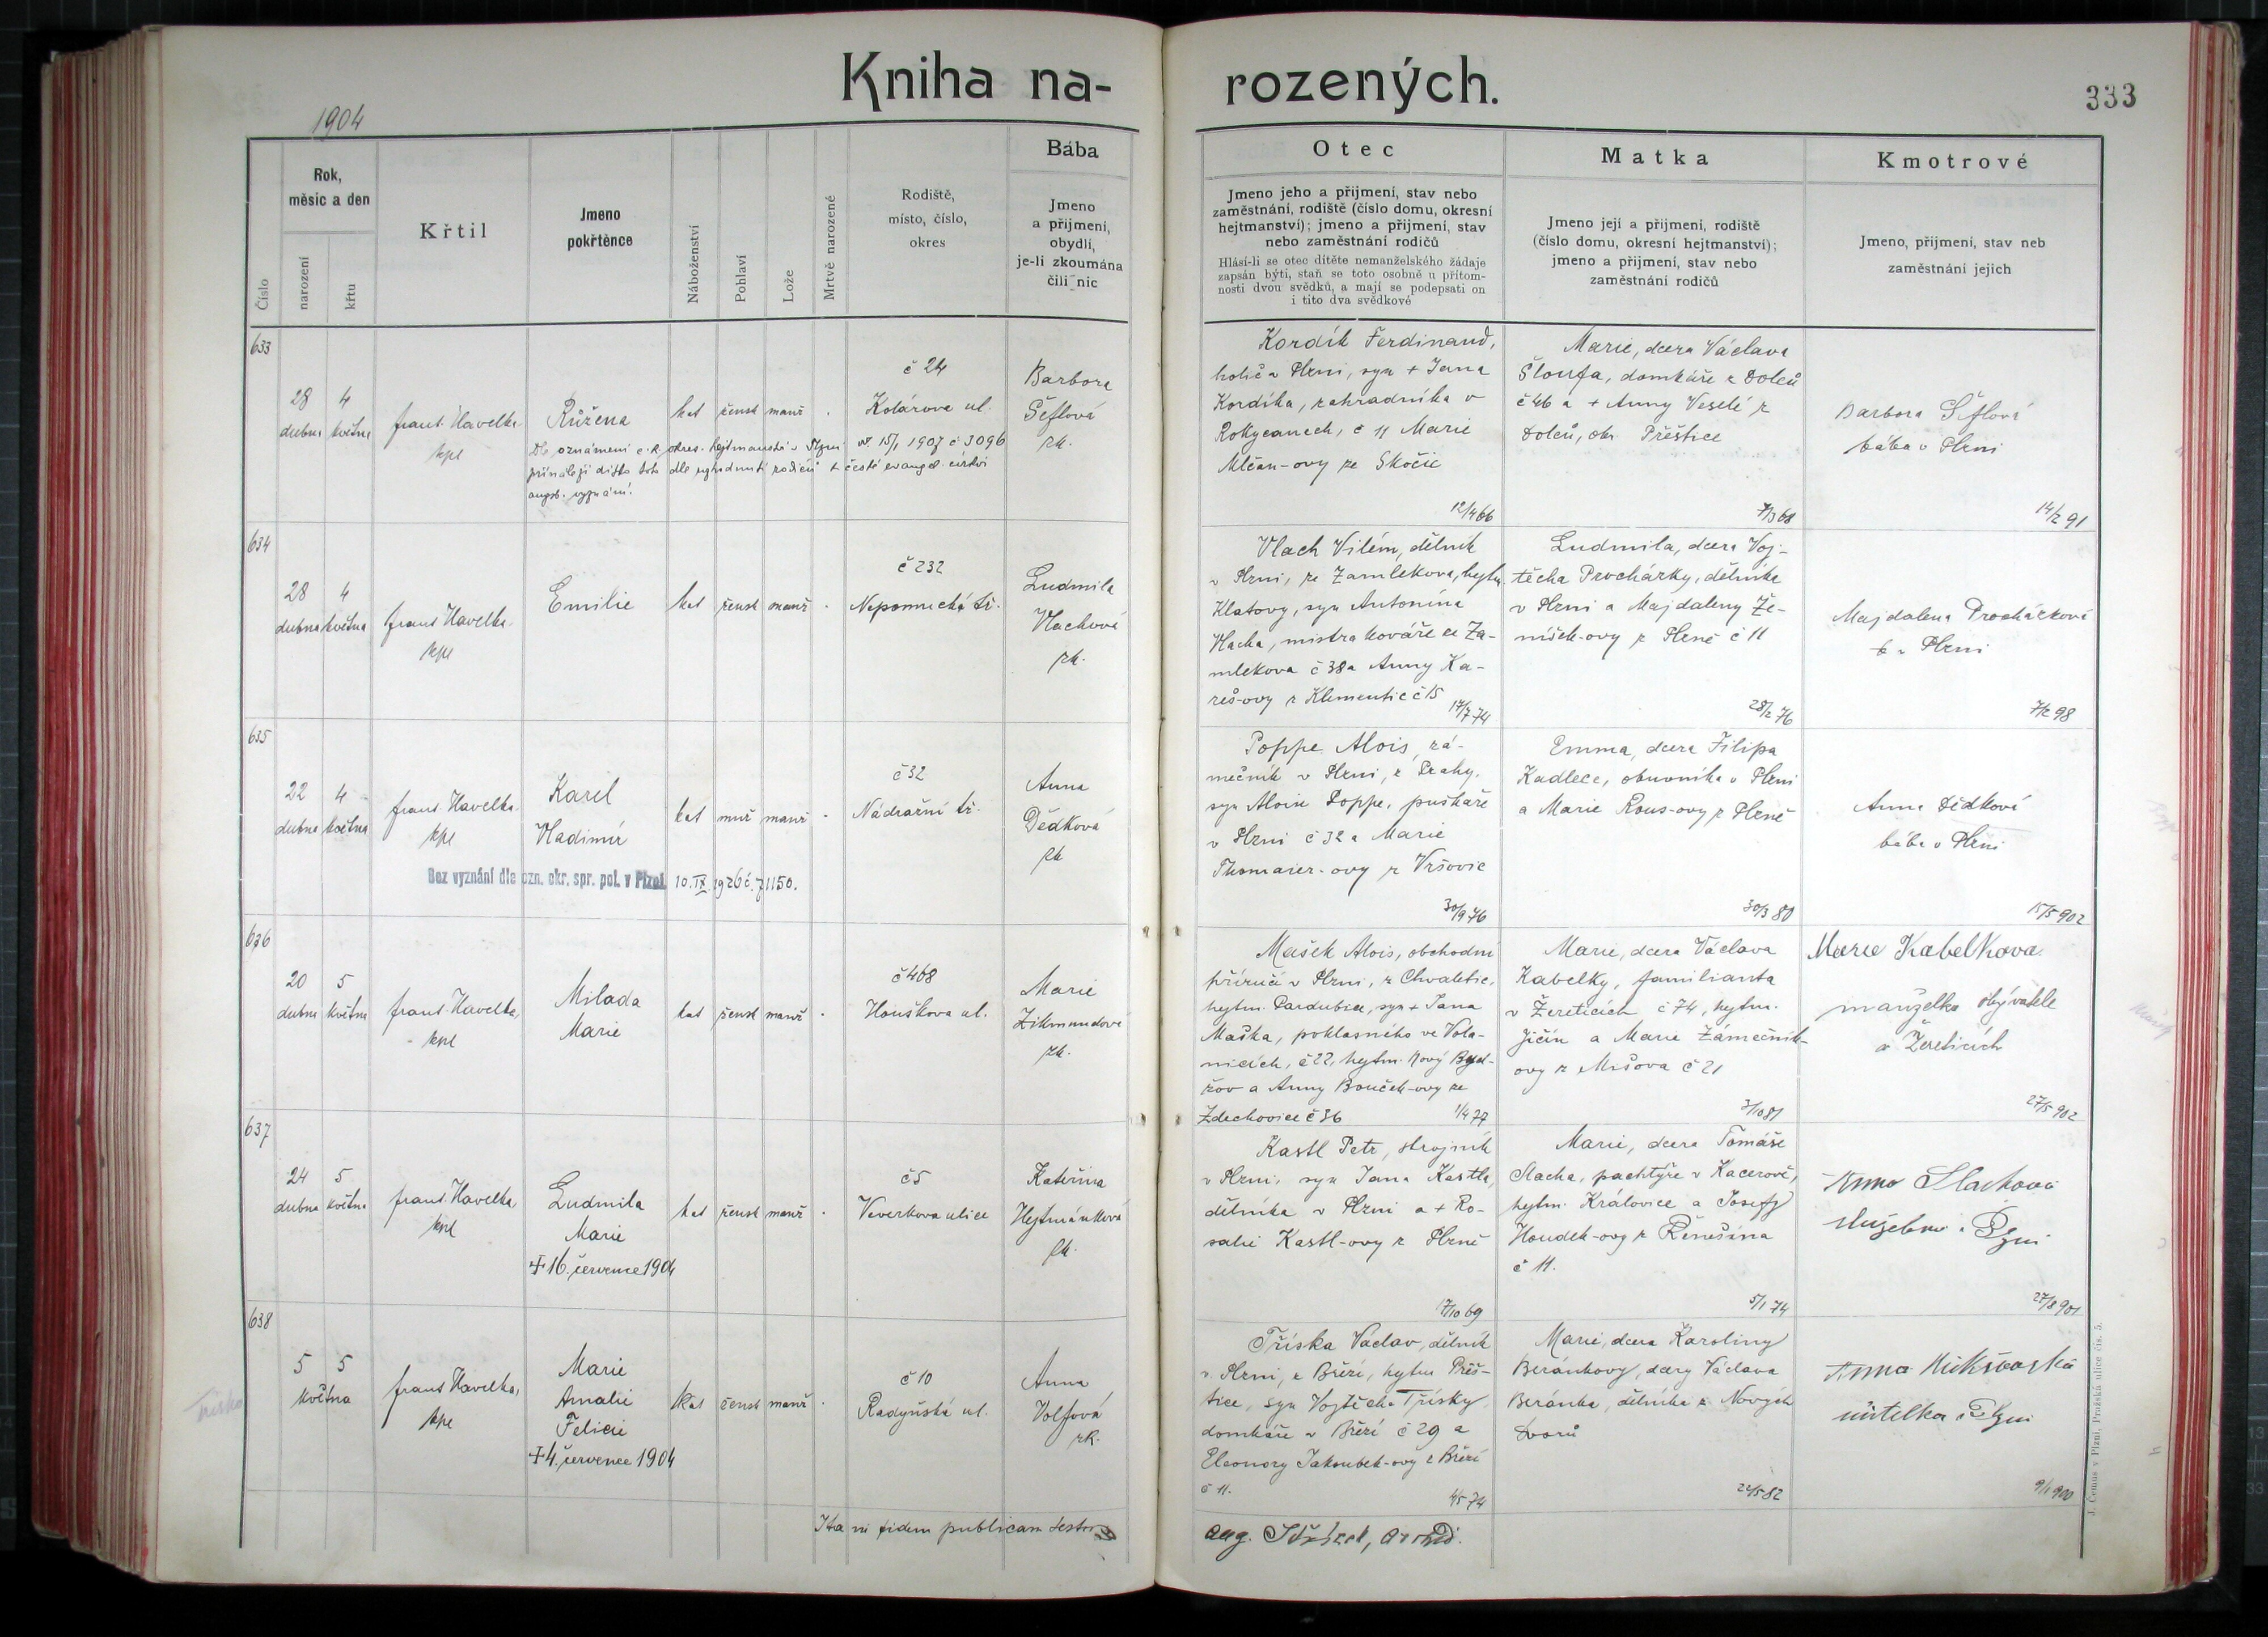 Kniha na-
rozených.
333
1904
Číslo
Rok,
měsíc a den
narození
křtu
Křtil
Jmeno
pokřtěnce
Náboženství
Pohlaví
Lože
Mrtvě narozené
Rodiště,
místo, číslo,
okres
Bába
Jmeno
a příjmení,
obydlí,
je-li zkoumána
čili nic
Otec
Jmeno jeho a příjmení, stav nebo
zaměstnání, rodiště (číslo domu, okresní
hejtmanství); jmeno a příjmení, stav
nebo zaměstnání rodičů
Hlásí-li se otec dítěte nemanželského žádaje
zapsán býti, staň se toto osobně u přítom-
nosti dvou svědků, a mají se podepsati on
i tito dva svědkové
Matka
Jmeno její a příjmení, rodiště
(číslo domu, okresní hejtmanství);
jmeno a příjmení, stav nebo
zaměstnání rodičů
Kmotrové
Jmeno, příjmení, stav neb
zaměstnání jejich
633
28 4
dubna května
frant. Havelka
kpl
Růžena
kat žensk manž .
č 24
Kolárova ul.
Barbora
Šeflová
zk.
Dle oznámení c. k. okres. hejtmanství v Plzni
15/1 1907 č 3096
přináleží dítko toto dle rodičů k české evangel. církvi
augsb. vyznání.
Kordík Ferdinand,
holič v Plzni, syn + Jana
Kordíka, zahradníka v
Rokycanech, č 11 Marie
Mlčan-ovy ze Skočic
12/4 66
Marie, dcera Václava
Šloufa, domkáře z Dolců
č 46 a + Anny Veselé z
Dolců, okr. Přeštice
7/3 68
Barbora Šeflová
bába v Plzni
14/2 91
634
28 4
dubna května
frant. Havelka
kpl
Emilie
kat žensk manž .
č 232
Nepomucká tř.
Ludmila
Vlachová
zk.
Vlach Vilém, dělník
v Plzni, ze Zamlekova, hejtm.
Klatovy, syn Antonína
Vlacha, mistra kováře ze Za-
mlekova č 38 a Anny Ka-
reš-ovy z Klementic č 15
17/7 74
Ludmila, dcera Voj-
těcha Procházky, dělníka
v Plzni a Majdaleny Že-
níšek-ovy z Plzně č 11
28/2 76
Majdalena Procházková
b v Plzni
7/2 98
635
22 4
dubna května
frant. Havelka
kpl
Karel
Vladimír
kat muž manž .
č 32
Nádražní tř.
Anna
Dědková
zk
Bez vyznání dle ozn. okr. spr. pol. v Plzni 10. IX. 1926 č. 71150.
Poppe Alois, zá-
mečník v Plzni, z Prahy,
syn Aloise Poppe, puškaře
v Plzni č 32 a Marie
Thomaier-ovy z Vršovic
30/9 76
Emma, dcera Filipa
Kadlece, obuvníka v Plzni
a Marie Rous-ovy z Plzně
30/3 80
Anna Dědková
bába v Plzni
15/5 902
636
20 5
dubna května
frant. Havelka,
kpl
Milada
Marie
kat žensk manž .
č 468
Houškova ul.
Marie
Zikmundová
zk.
Mašek Alois, obchodní
příručí v Plzni, z Chvaletic,
hejtm. Pardubice, syn + Jana
Maška, poklasného ve Vola-
nicích, č 22, hejtm. Nový Byd-
žov a Anny Bouček-ovy ze
Zdechovic č 36
1/4 77
Marie, dcera Václava
Kabelky, familianta
v Žereticích č 74, hejtm.
Jičín a Marie Zámečník-
ovy z Mišova č 21
7/10 81
Marie Kabelkova
manželka obyvatele
v Žereticích
27/5 902
637
24 5
dubna května
frant. Havelka
kpl
Ludmila
Marie
+ 16. července 1904
kat žensk manž .
č 5
Veverkova ulice
Kateřina
Hejtmánková
zk.
Kastl Petr, strojník
v Plzni, syn Jana Kastla,
dělníka v Plzni a + Ro-
salie Kastl-ovy z Plzně
7/10 69
Marie, dcera Tomáše
Slacha, pachtýře v Kacerově,
hejtm. Královice a Josefy
Houdek-ovy z Řenešína
č 11.
5/1 74
Anna Slachova
služebná v Plzni
27/8 901
638
5 5
května
frant Havelka,
kpl
Marie
Amalie
Felicie
+ 4. července 1904
kat žensk manž .
č 10
Radyňská ul.
Anna
Volfová
zk.
Tříska Václav, dělník
v Plzni, z Březí, hejtm Přeš-
tice, syn Vojtěcha Třísky
domkáře v Březí č 29 a
Eleonory Jakoubek-ovy z Březí
č 11.
4/5 74
Marie, dcera Karoliny
Beránkovy, dcery Václava
Beránka, dělníka z Nových
Dvorů
22/5 82
Anna
učitelka v Plzni
9/1 900
Tříska
Ita in fidem publicam testor
J. Čemus v Plzni, Pražská ulice čís. 5.